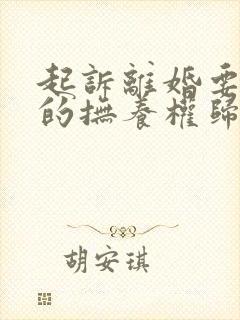 起訴離婚要
的撫養權歸
胡安琪